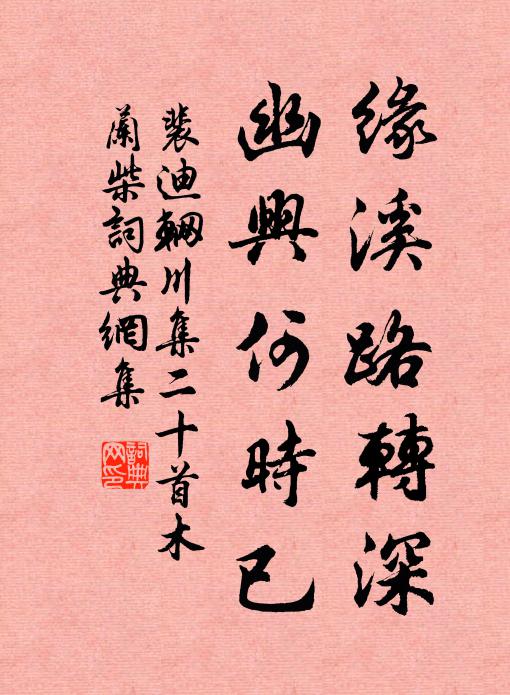 緣溪路轉深
幽興何時已
裴迪輞川集二十首木
蘭柴詞典網集
詞典
网印